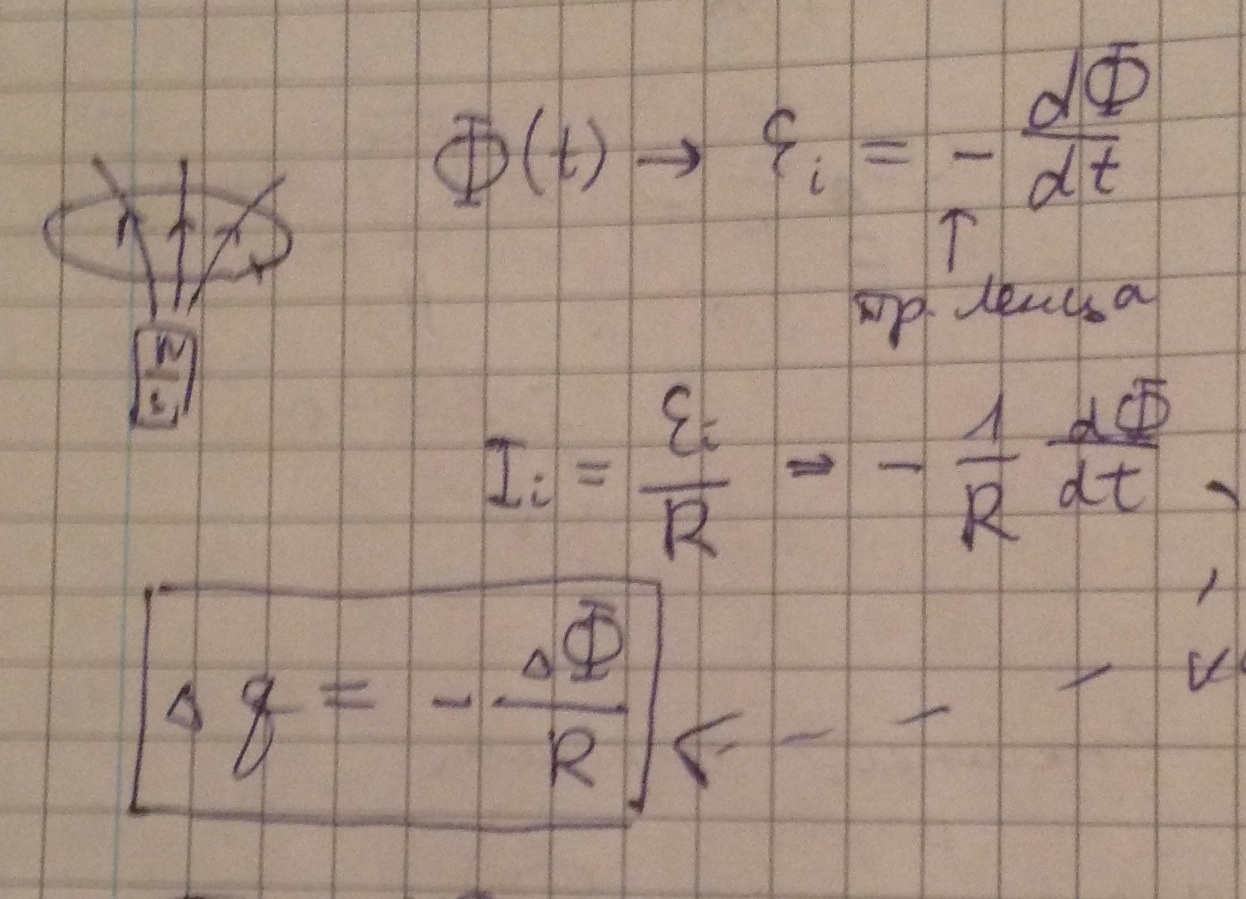 Φ(t) → ℰᵢ = - dΦ/dt
↑
пр. Ленца
N
S
Iᵢ = ℰᵢ/R = - 1/R dΦ/dt
Δq = - ΔΦ/R